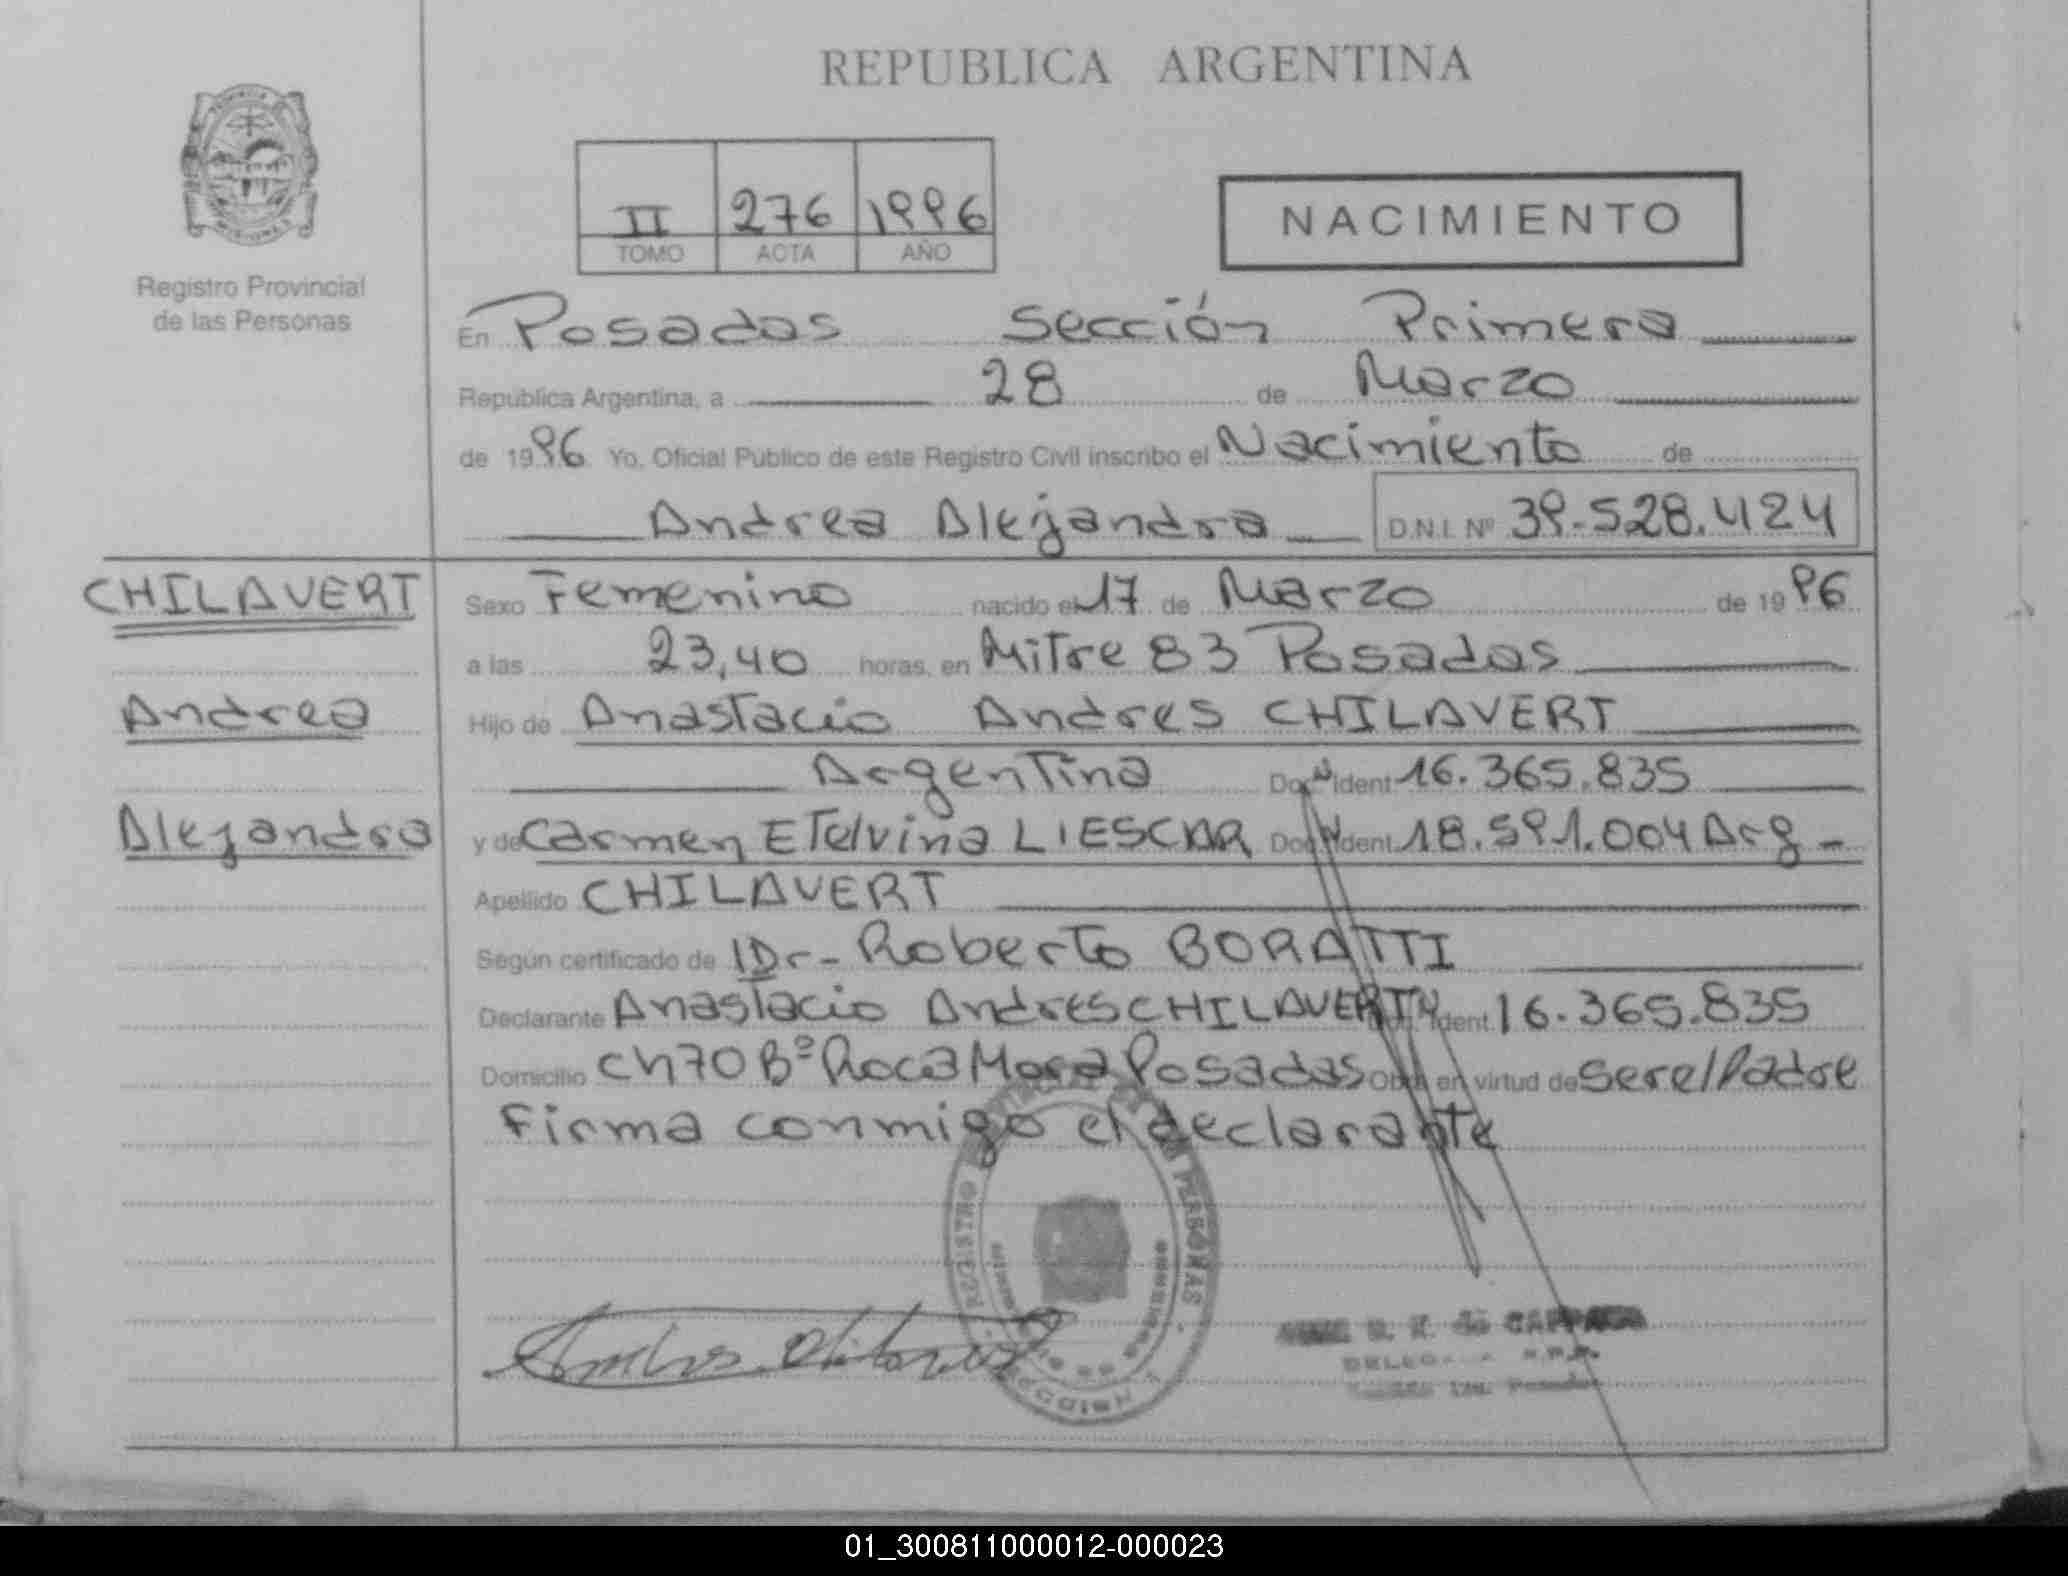 REPUBLICA ARGENTINA
PROVINCIA DE MISIONES
Registro Provincial
de las Personas
II 276 1996
TOMO ACTA AÑO
NACIMIENTO
En Posadas Sección Primera
República Argentina, a 28 de Marzo
de 1996 Yo, Oficial Público de este Registro Civil inscribo el Nacimiento de
Andrea Alejandra D.N.I. Nº 39.528.424
CHILAVERT
Andrea
Alejandra
Sexo Femenino nacido el 17 de Marzo de 1996
a las 23,40 horas, en Mitre 83 Posadas
Hijo de Anastacio Andres CHILAVERT
Argentina Doc. Ident 16.365.835
y de Carmen Etelvina LIESCAR Doc. Ident 18.591.004 Arg -
Apellido CHILAVERT
Según certificado de Dr- Roberto BORATTI
Declarante Anastacio Andres CHILAVERT Doc. Ident 16.365.835
Domicilio Ch 70 Bº Roca Mora Posadas Obra en virtud de ser el Padre
Firma conmigo el declarante
REGISTRO PROVINCIAL DE LAS PERSONAS
01_300811000012-000023